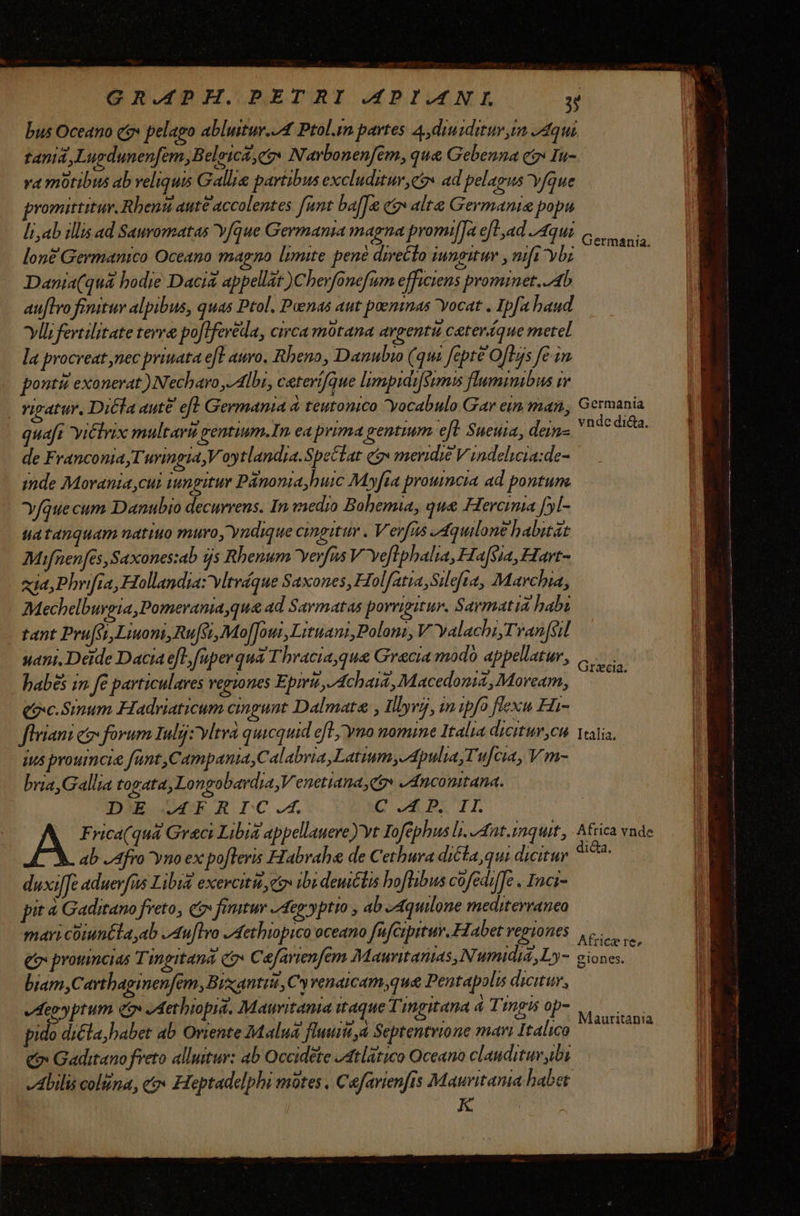 GRAPH. PETRI APIANI. 35
bus Oceano & pelago abluitur. A Ptol. in partes 4, diuiditur, in Aqui
taniā, Lugdunensem, Belgicā, & Narbonensem, quæ Gebenna & Iu-
ra mōtibus ab reliquis Galliæ partibus excluditur, & ad pelagus vsque
promittitur. Rheni autē accolentes sunt bassæ & altæ Germaniæ popu
li, ab illis ad Sauromatas vsque Germania magna promissa est, ad Aqui
Germania.
lonē Germanico Oceano magno limite penè directo iungitur, nisi vbi
Dania (quā hodie Daciā appellāt) Chersonesum efficiens prominet. Ab
austro finitur alpibus, quas Ptol. Pœnas aut pœninas vocat. Ipsa haud
vlli fertilitate terræ postferēda, circa mōtana argentū cæterāque metel
la procreat, nec priuata est auro. Rheno, Danubio (qui septē Ostijs se in
pontū exonerat) Necharo, Albi, cæterisque limpidissimis fluminibus ir
rigatur. Dicta autē est Germania à teutonico vocabulo Gar ein man,
Germania vnde dicta.
quasi victrix multarū gentium. In ea prima gentium est Sueuia, dein-
de Franconia, Turingia, Voytlandia. Spectat & meridiē Vindelicia: de-
inde Morauia, cui iungitur Pānonia, huic Mysia prouincia ad pontum
vsque cum Danubio decurrens. In medio Bohemia, quæ Hercinia syl-
ua tanquam natiuo muro, vndique cingitur. Versus Aquilonē habitāt
Misnenses, Saxones: ab ijs Rhenum versus Vvestphalia, Hassia, Hart-
zia, Phrisia, Hollandia: vltrāque Saxones, Holsatia, Silesia, Marchia,
Mechelburgia, Pomerania, quæ ad Sarmatas porrigitur. Sarmatiā habi
tant Prussi, Liuoni, Russi, Mossoui, Lituani, Poloni, Vvalachi, Transsil
uani. Deīde Dacia est, super quā Thracia, quæ Græcia modò appellatur,
Græcia.
habēs in se particulares regiones Epirū, Achaiā, Macedoniā, Moream,
&c. Sinum Hadriaticum cingunt Dalmatæ, Illyrij, in ipso flexu Hi-
striani & forum Iulij: vltrà quicquid est, vno nomine Italia dicitur, cu
Italia.
ius prouinciæ sunt, Campania, Calabria, Latium, Apulia, Tuscia, Vm-
bria, Gallia togata, Longobardia, Venetiana, & Anconitana.
DE AFRICA. CAP. II.
Africa (quā Græci Libiā appellauere) vt Iosephus li. Ant. inquit,
Africa vnde dicta.
ab Afro vno ex posteris Habrahæ de Cethura dicta, qui dicitur
duxisse aduersus Libiā exercitū, & ibi deuictis hostibus cōsedisse. Inci-
pit à Gaditano freto, & finitur Aegyptio, ab Aquilone mediterraneo
mari cōiuncta, ab Austro Aethiopico oceano suscipitur. Habet regiones
Africæ re, giones.
& prouincias Tingitanā & Cæsariensem Mauritanias, Numidiā, Ly-
biam, Carthaginensem, Bizantiū, Cyrenaicam, quæ Pentapolis dicitur,
Aegyptum & Aethiopiā. Mauritania itaque Tingitana à Tingis op-
Mauritania
pido dicta, habet ab Oriente Maluā fluuiū, à Septentrione mari Italico
& Gaditano freto alluitur: ab Occidēte Atlātico Oceano clauditur, ibi
Abilis colūna, & Heptadelphi mōtes. Cæsariensis Mauritania habet
K